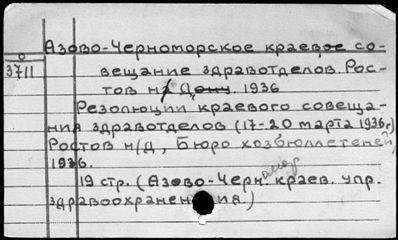 Азово-Черноморское краевое со-
0
3711
вещание здравотделов. Рос-
тов н/Дону. 1936
Резолюции краевого совеща-
ния здравотделов (17-20 марта 1936г.)
Ростов н/Д, Бюро хозбюллетеней,
1936.
19 стр. (Азово-Черн. краев. упр.
здравоохранения.)